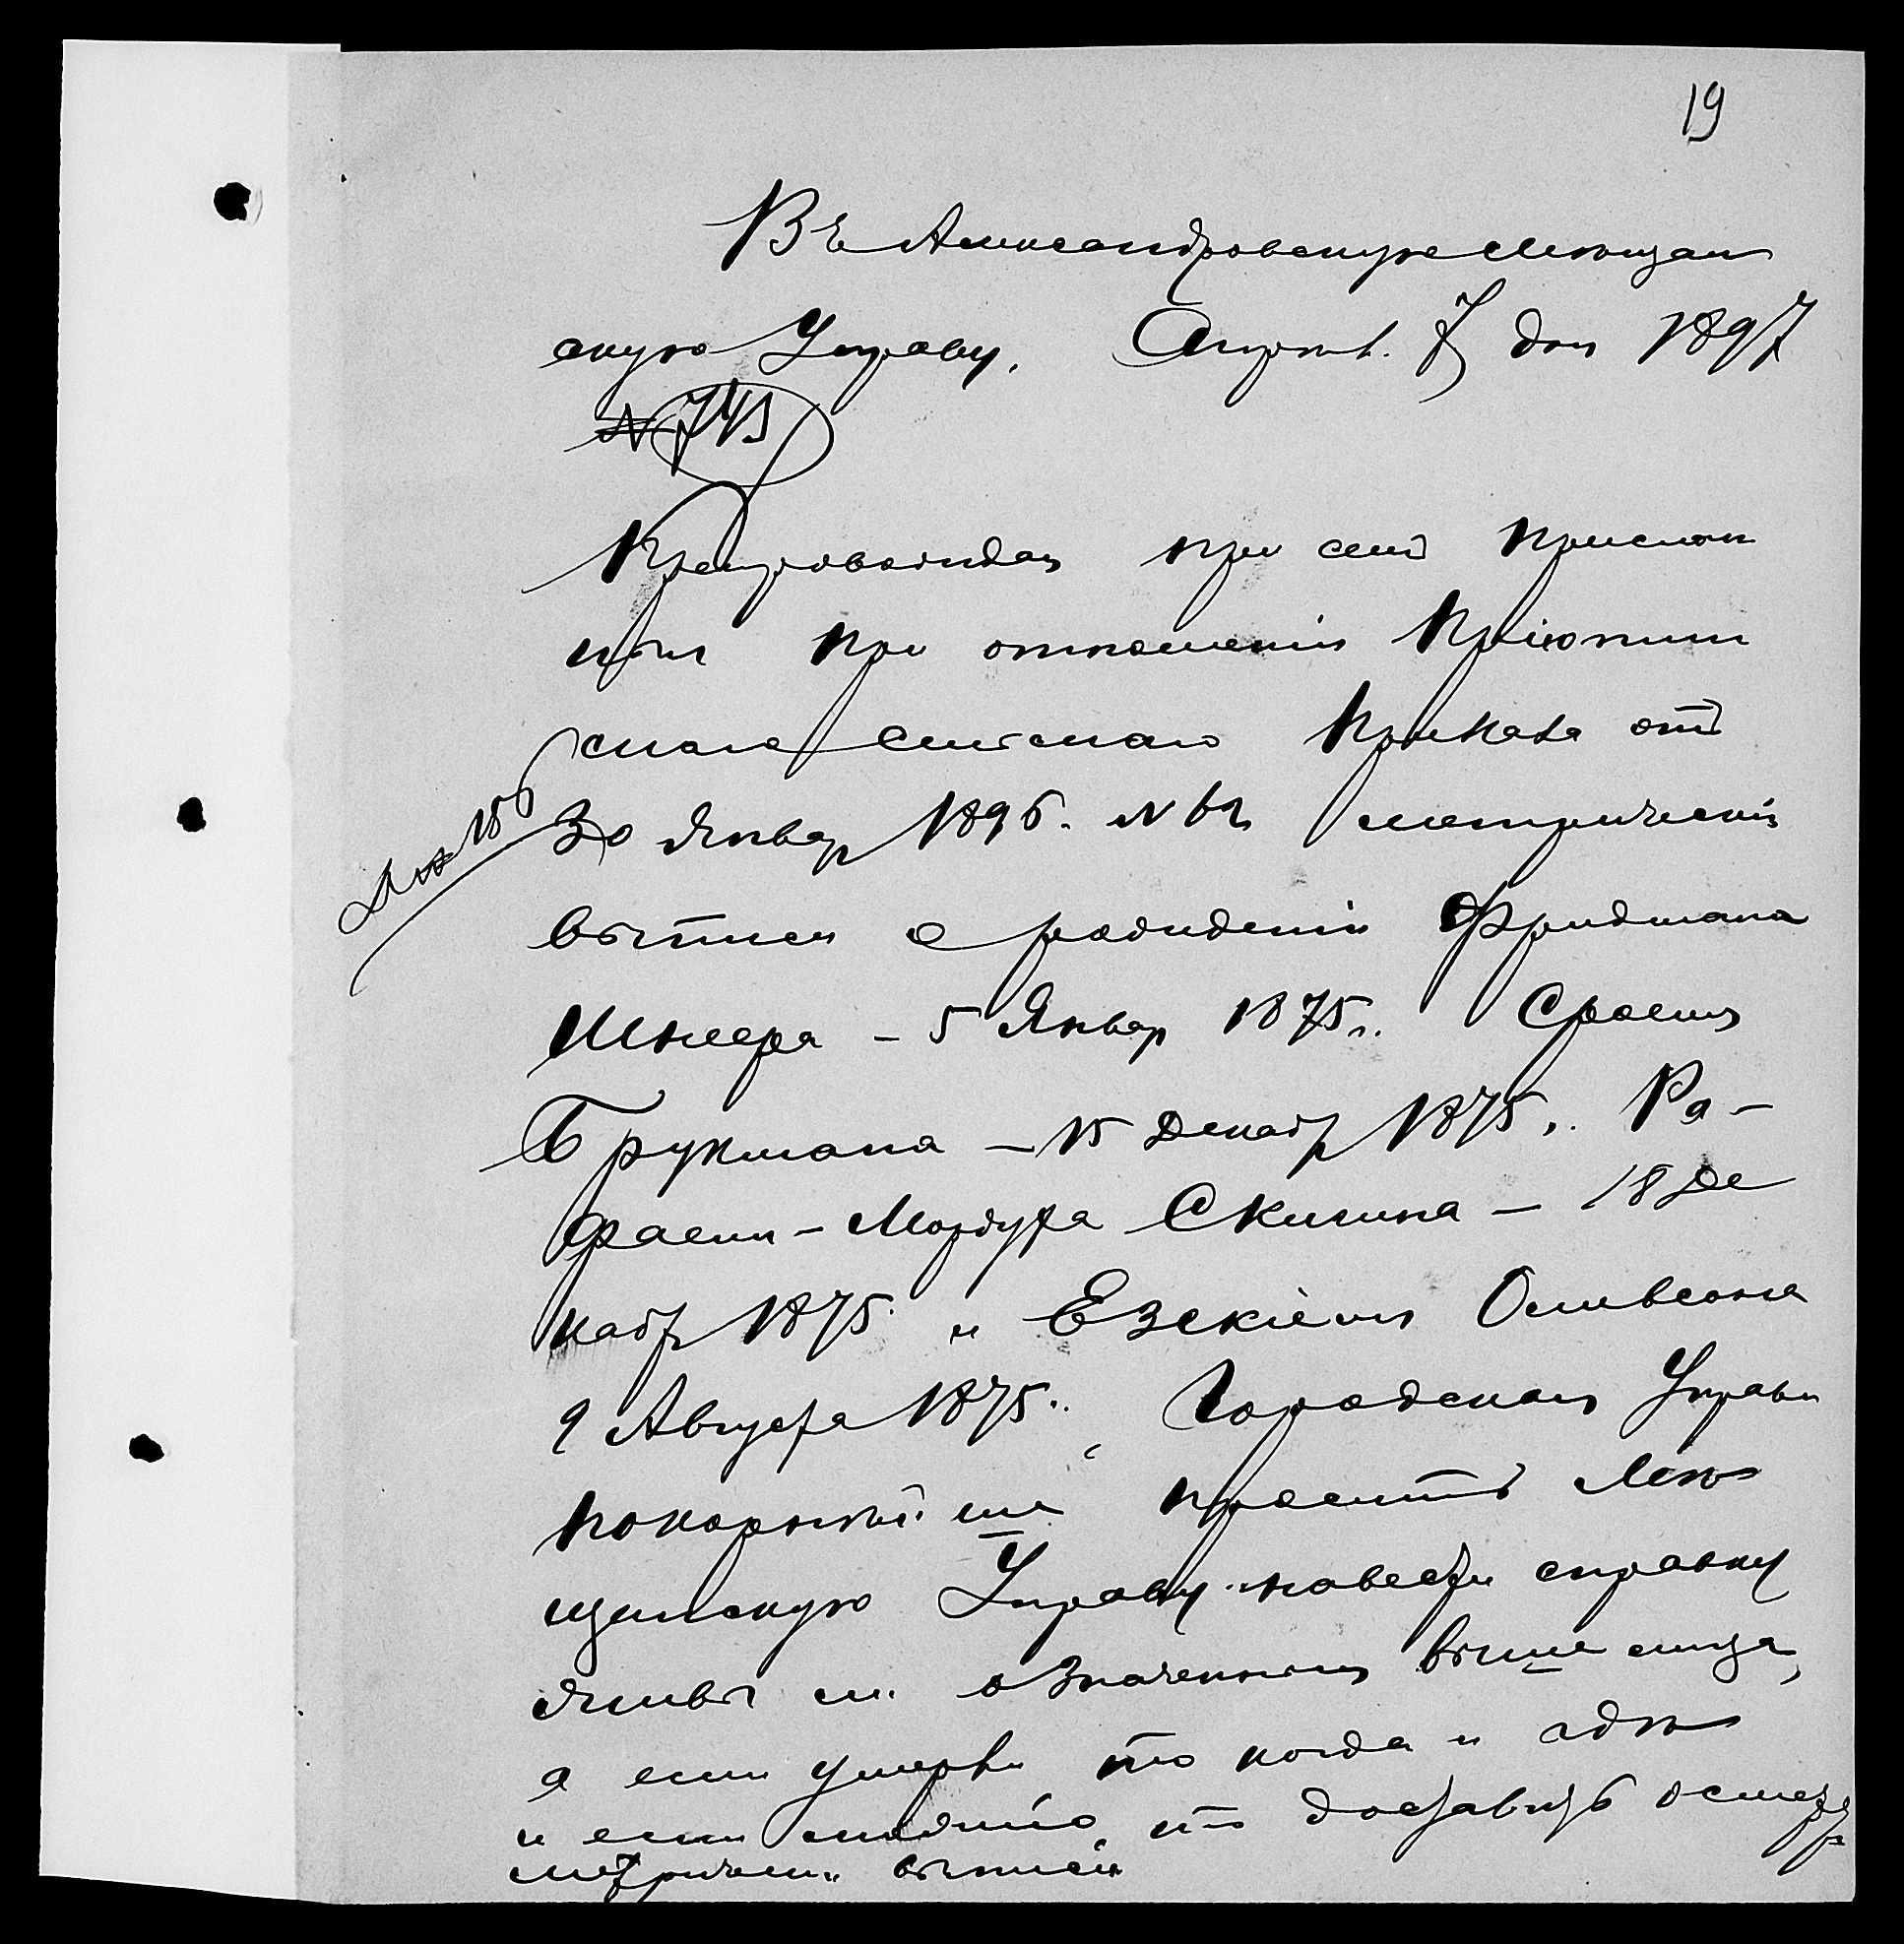 19
Въ Александровскую Мѣщан
скую Управу. Апрѣл. 7 дня 1897
№ 743
Препровождая при семъ прислан
ныя при отношеніи
скаго Сиротскаго Приказа отъ
30 Январ 1896. №
метрическія
выписи о рожденіи Фридмана
Шмера – 5 Январ 1875 г.
Брукмана – 15 Декабр 1875 г. Ра–
фаила – Мордуха Скигина – 18 Де
кабр 1875. и Езекіеля
9 Августа 1875 г. Городская Управа
покорнѣйше проситъ Мѣ
щанскую Управу навести справку
живы ли означенныя выше лица,
а если умерли то когда и гдѣ
и если то доставить о смерт
метрическ. выписи